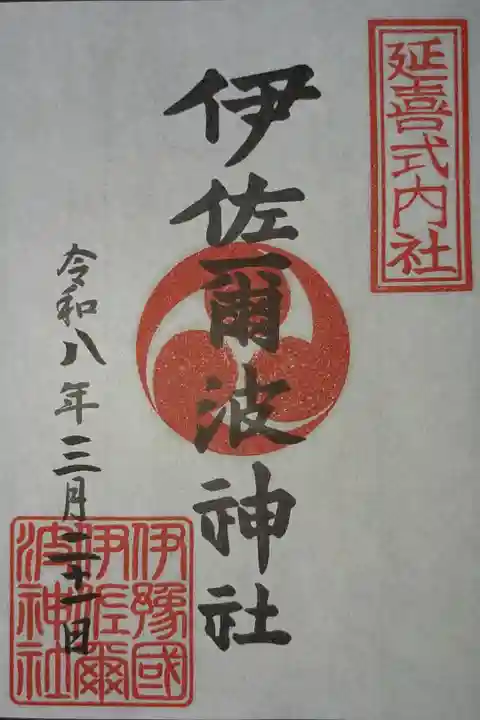 延喜式内社
伊佐爾波神社
令和八年三月二十一日
伊豫國
伊佐爾
波神社